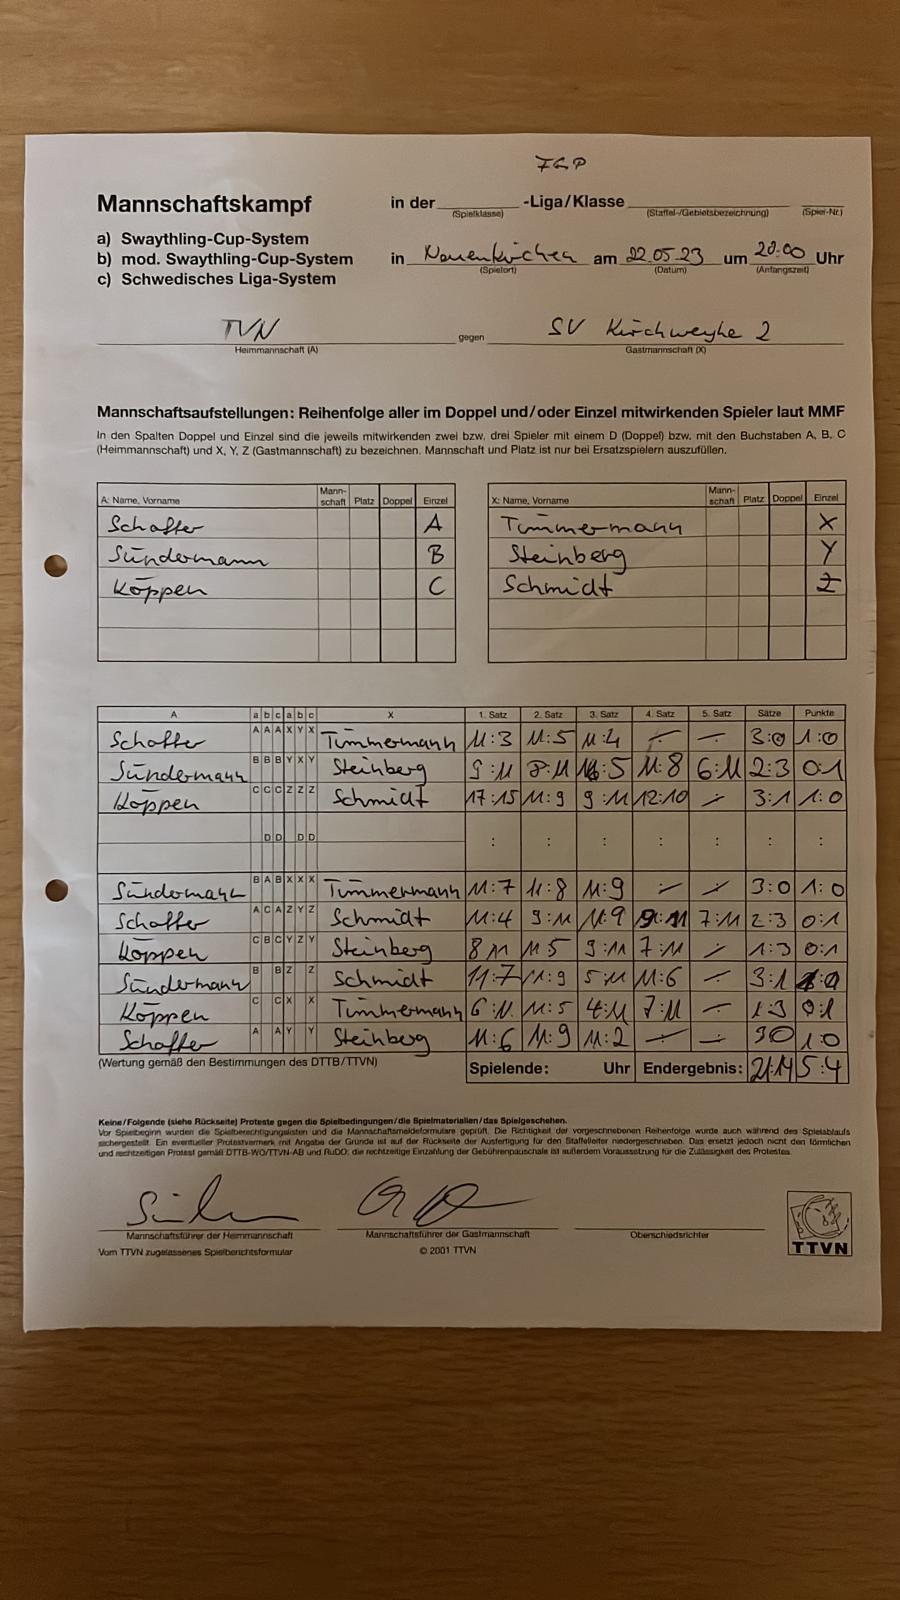 FGP
Mannschaftskampf in der -Liga/Klasse
(Spielklasse) (Staffel-/Gebietsbezeichnung) (Spiel-Nr.)
a) Swaythling-Cup-System
b) mod. Swaythling-Cup-System
c) Schwedisches Liga-System
in Neuenkirchen am 22.05.23 um 20:00 Uhr
(Spielort) (Datum) (Anfangszeit)
TVN gegen SV Kirchweyhe 2
Heimmannschaft (A) Gastmannschaft (X)
Mannschaftsaufstellungen: Reihenfolge aller im Doppel und/oder Einzel mitwirkenden Spieler laut MMF
In den Spalten Doppel und Einzel sind die jeweils mitwirkenden zwei bzw. drei Spieler mit einem D (Doppel) bzw. mit den Buchstaben A, B, C
(Heimmannschaft) und X, Y, Z (Gastmannschaft) zu bezeichnen. Mannschaft und Platz ist nur bei Ersatzspielern auszufüllen.
A: Name, Vorname Mann-schaft Platz Doppel Einzel X: Name, Vorname Mann-schaft Platz Doppel Einzel
Schaffer A Timmermann X
Sündermann B Steinberg Y
Köppen C Schmidt Z
A a b c a b c X 1. Satz 2. Satz 3. Satz 4. Satz 5. Satz Sätze Punkte
Schaffer A A A X Y X Timmermann 11:3 11:5 11:4 3:0 1:0
Sündermann B B B Y X Y Steinberg 9:11 8:11 :5 11:8 6:11 2:3 0:1
Köppen C C C Z Z Z Schmidt 17:15 11:9 9:11 12:10 3:1 1:0
D D D D : : : : : : :
Sündermann B A B X X X Timmermann 11:7 11:8 11:9 3:0 1:0
Schaffer A C A Z Y Z Schmidt 11:4 9:11 11:9 9:11 7:11 2:3 0:1
Köppen C B C Y Z Y Steinberg 8 11 11:5 9:11 7:11 1:3 0:1
Sündermann B B Z Z Schmidt 11:7 11:9 5:11 11:6 3:1 1:0
Köppen C C X X Timmermann 6:11 11:5 4:11 7:11 1:3 0:1
Schaffer A A Y Y Steinberg 11:6 11:9 11:2 3 0 1:0
(Wertung gemäß den Bestimmungen des DTTB/TTVN) Spielende: Uhr Endergebnis: 21:14 5:4
Keine/Folgende (siehe Rückseite) Proteste gegen die Spielbedingungen/die Spielmaterialien/das Spielgeschehen.
Vor Spielbeginn wurden die Spielberechtigungslisten und die Mannschaftsmeldeformulare geprüft. Die Richtigkeit der vorgeschriebenen Reihenfolge wurde auch während des Spielablaufs
sichergestellt. Ein eventueller Protestvermerk mit Angabe der Gründe ist auf der Rückseite der Ausfertigung für den Staffelleiter niedergeschrieben. Das ersetzt jedoch nicht den förmlichen
und rechtzeitigen Protest gemäß DTTB-WO/TTVN-AB und RuDO; die rechtzeitige Einzahlung der Gebührenpauschale ist außerdem Voraussetzung für die Zulässigkeit des Protestes.
Mannschaftsführer der Heimmannschaft Mannschaftsführer der Gastmannschaft Oberschiedsrichter
Vom TTVN zugelassenes Spielberichtsformular © 2001 TTVN
TTVN